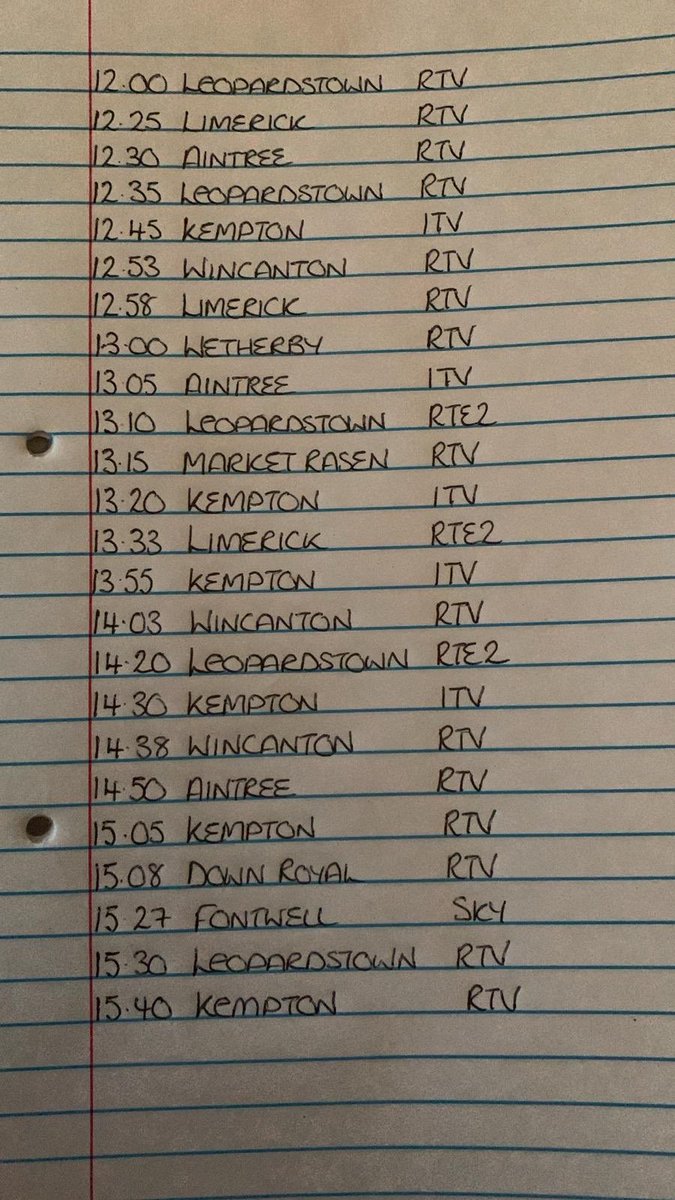 12.00 LEOPARDSTOWN RTV
12.25 LIMERICK RTV
12.30 AINTREE RTV
12.35 LEOPARDSTOWN RTV
12.45 KEMPTON ITV
12.53 WINCANTON RTV
12.58 LIMERICK RTV
13.00 WETHERBY RTV
13.05 AINTREE ITV
13.10 LEOPARDSTOWN RTE2
13.15 MARKET RASEN RTV
13.20 KEMPTON ITV
13.33 LIMERICK RTE2
13.55 KEMPTON ITV
14.03 WINCANTON RTV
14.20 LEOPARDSTOWN RTE2
14.30 KEMPTON ITV
14.38 WINCANTON RTV
14.50 AINTREE RTV
15.05 KEMPTON RTV
15.08 DOWN ROYAL RTV
15.27 FONTWELL SKY
15.30 LEOPARDSTOWN RTV
15.40 KEMPTON RTV